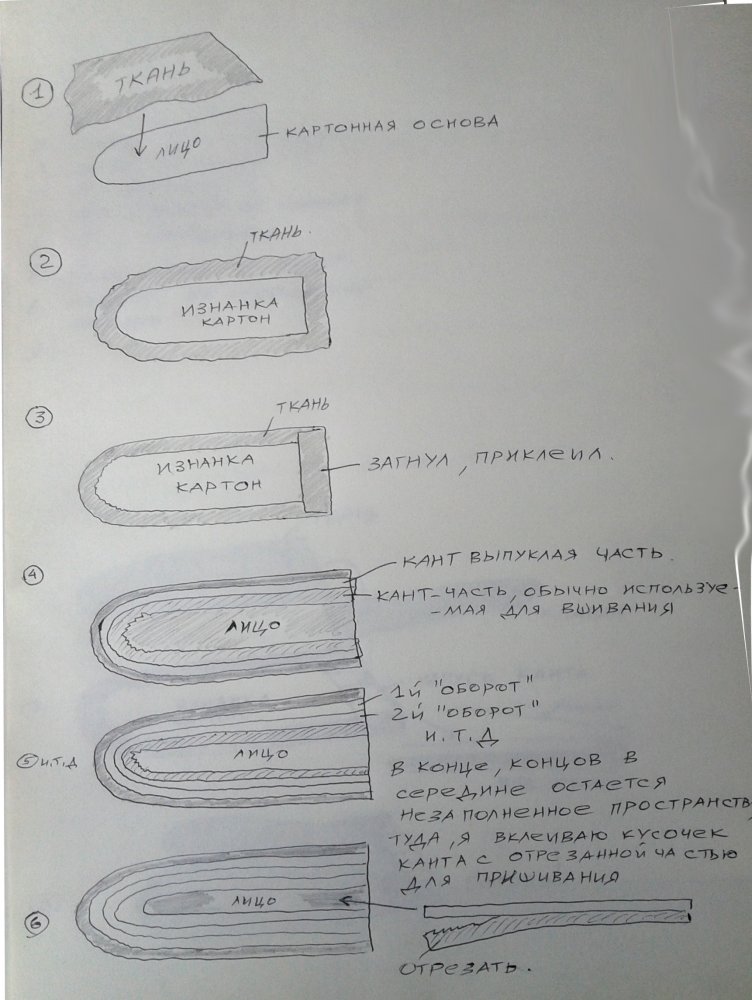 1
ТКАНЬ
ЛИЦО
КАРТОННАЯ ОСНОВА
2
ТКАНЬ.
ИЗНАНКА
КАРТОН
3
ТКАНЬ
ИЗНАНКА
КАРТОН
ЗАГНУЛ, ПРИКЛЕИЛ.
4
КАНТ ВЫПУКЛАЯ ЧАСТЬ.
КАНТ-ЧАСТЬ, ОБЫЧНО ИСПОЛЬЗУЕ-
-МАЯ ДЛЯ ВШИВАНИЯ
ЛИЦО
5 и.т.д
1й "ОБОРОТ"
2й "ОБОРОТ"
И.Т.Д
ЛИЦО
В КОНЦЕ, КОНЦОВ В
СЕРЕДИНЕ ОСТАЕТСЯ
НЕЗАПОЛНЕННОЕ ПРОСТРАНСТВ
ТУДА, Я ВКЛЕИВАЮ КУСОЧЕК
КАНТА С ОТРЕЗАННОЙ ЧАСТЬЮ
ДЛЯ ПРИШИВАНИЯ
6
ЛИЦО
ОТРЕЗАТЬ.